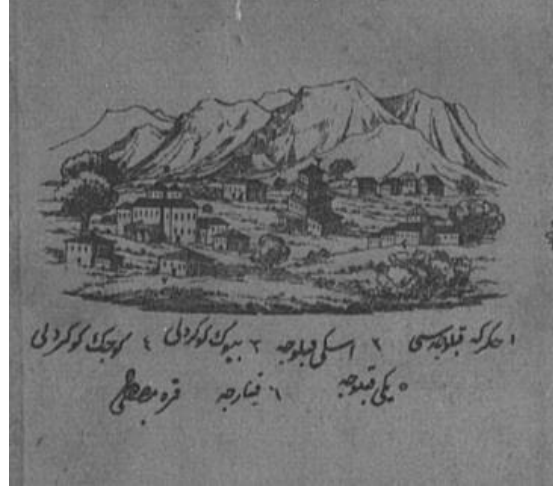 ١ چكركه قپلوجه‌سی ٢ اسكی قپلوجه ٣ بیوك كوكردلی ٤ كوچك كوكردلی
٥ یكی قپلوجه ٦ قینارجه قره مصطفی